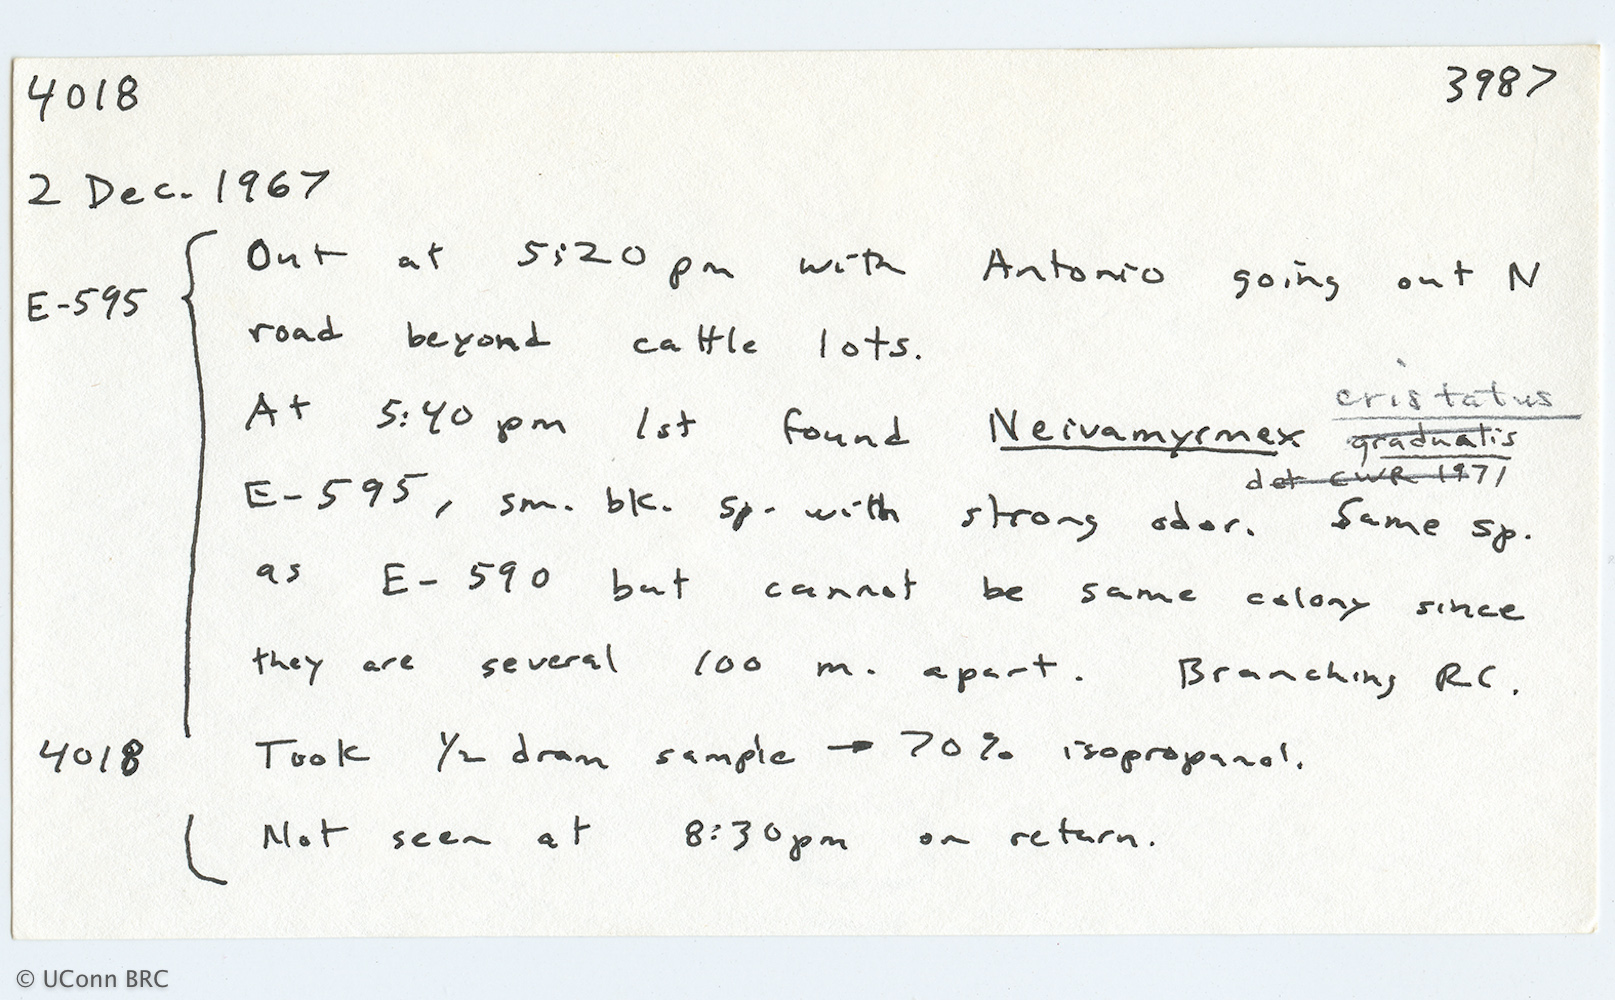 4018 3987
2 Dec. 1967
Out at 5:20 pm with Antonio going out N
E-595
road beyond cattle lots.
cristatus
At 5:40 pm 1st found Neivamyrmex gradualis
det CWR 1971
E-595, sm. bk. sp. with strong odor. Same sp.
as E-590 but cannot be same colony since
they are several 100 m. apart. Branching RC.
4018 Took 1/2 dram sample → 70% isopropanol.
Not seen at 8:30pm on return.
© UConn BRC